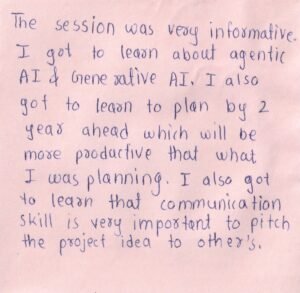 The session was very informative.
I got to learn about agentic
AI & Generative AI. I also
got to learn to plan by 2
year ahead which will be
more productive that what
I was planning. I also got
to learn that communication
skill is very important to pitch
the project idea to other's.